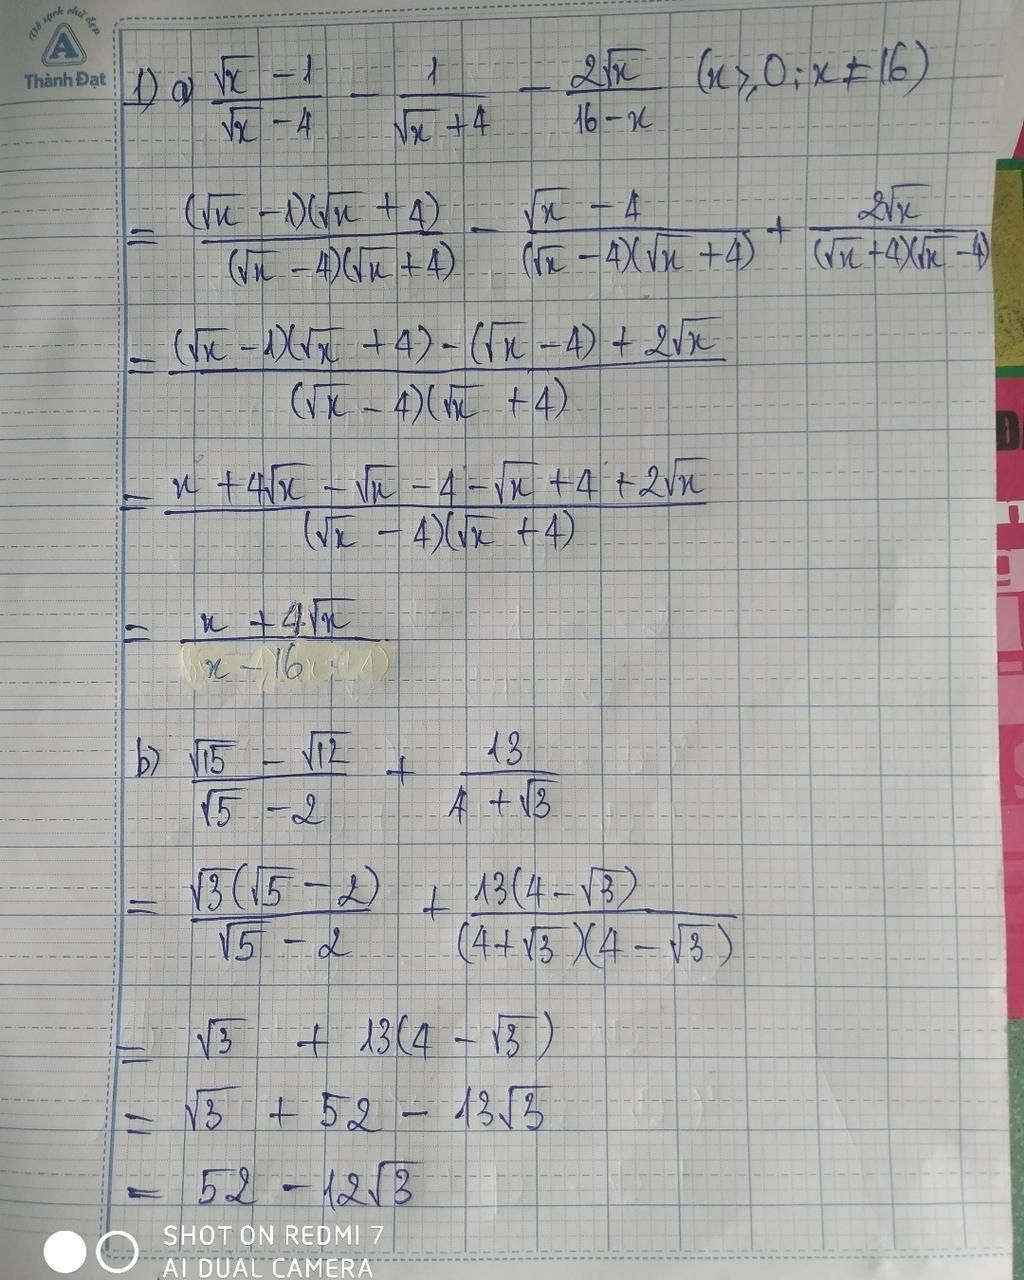 Vở sạch chữ đẹp
A
Thành Đạt
1) a) (√x - 1)/(√x - 4) - 1/(√x + 4) - 2√x/(16 - x) (x ≥ 0; x ≠ 16)
= (√x - 1)(√x + 4)/(√x - 4)(√x + 4) - (√x - 4)/(√x - 4)(√x + 4) + 2√x/(√x + 4)(√x - 4)
= ((√x - 1)(√x + 4) - (√x - 4) + 2√x)/(√x - 4)(√x + 4)
= (x + 4√x - √x - 4 - √x + 4 + 2√x)/(√x - 4)(√x + 4)
= (x + 4√x)/(x - 16)
b) (√15 - √12)/(√5 - 2) + 13/(4 + √3)
= √3(√5 - 2)/(√5 - 2) + 13(4 - √3)/(4 + √3)(4 - √3)
= √3 + 13(4 - √3)
= √3 + 52 - 13√3
= 52 - 12√3
SHOT ON REDMI 7
AI DUAL CAMERA